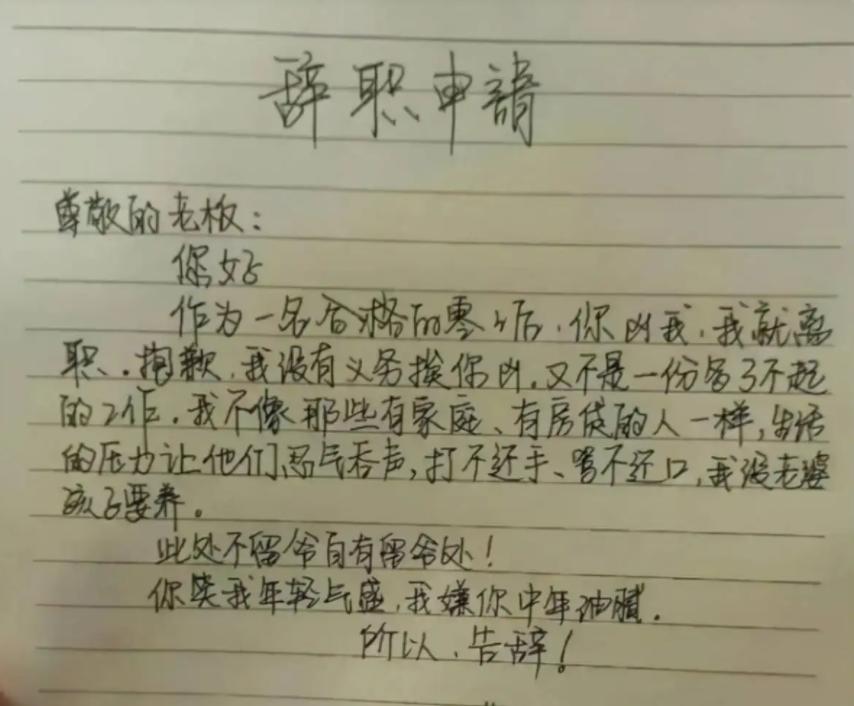 辞职申請
尊敬的老板：
你好
作为一名合格的零0后，你凶我，我就离
职．抱歉，我没有义务挨你凶．又不是一份多了不起
的工作．我不像那些有家庭、有房贷的人一样，生活
的压力让他们忍气吞声，打不还手、骂不还口，我没老婆
孩子要养。
此处不留爷自有留爷处！
你笑我年轻气盛，我嫌你中年油腻．
所以、告辞！